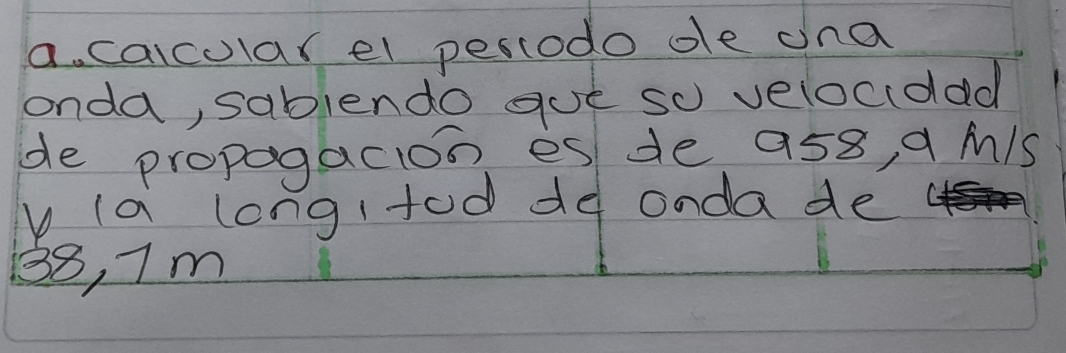 a. calcular el periodo de una
onda, sabiendo que su velocidad
de propagación es de 958,9 m/s
y la longitud de onda de
38,7 m